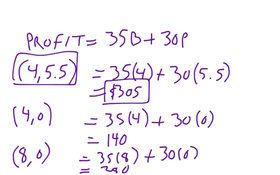 PROFIT = 35B + 30P
(4,5.5) = 35(4) + 30(5.5)
= $305
(4,0) = 35(4) + 30(0)
= 140
(8,0) = 35(8) + 30(0)
= 280